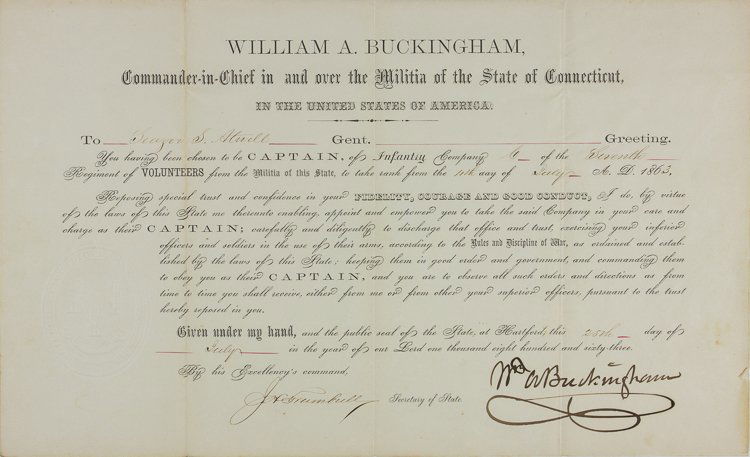 WILLIAM A. BUCKINGHAM,
Commander-in-Chief in and over the Militia of the State of Connecticut,
IN THE UNITED STATES OF AMERICA.
To S. Gent. Greeting.
You having been chosen to be CAPTAIN, of Infantry Company of the Seventh
Regiment of VOLUNTEERS from the Militia of this State, to take rank from the day of July A. D. 1863.
Reposing special trust and confidence in your FIDELITY, COURAGE AND GOOD CONDUCT, I do, by virtue
of the laws of this State me thereunto enabling, appoint and empower you to take the said Company in your care and
charge as their CAPTAIN; carefully and diligently to discharge that office and trust, exercising your inferior
officers and soldiers in the use of their arms, according to the Rules and Discipline of War, as ordained and estab-
lished by the laws of this State; keeping them in good order and government, and commanding them
to obey you as their CAPTAIN, and you are to observe all such orders and directions as from
time to time you shall receive, either from me or from other your superior officers, pursuant to the trust
hereby reposed in you.
Given under my hand, and the public seal of the State, at Hartford, this 25th day of
July in the year of our Lord one thousand eight hundred and sixty-three.
By his Excellency's command.
Wm A Buckingham
J H Trumbull Secretary of State.